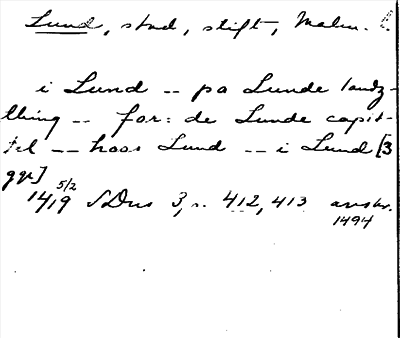 Lund, stad, stift, Malm. l.
i Lund -- pa Lunde landz-
thing -- for: de Lunde capit-
tel -- hoos Lund -- i Lund [3
ggr]
1419 5/2 SDns 3, s. 412, 413 avskr.
1494